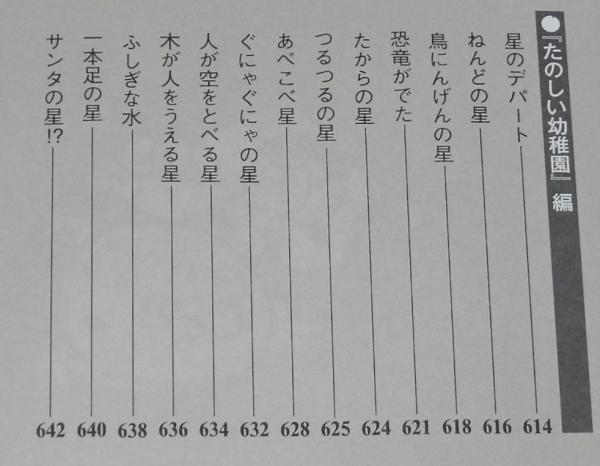 ●『たのしい幼稚園』編
星のデパート 614
ねんどの星 616
鳥にんげんの星 618
恐竜がでた 621
たからの星 624
つるつるの星 625
あべこべ星 628
ぐにゃぐにゃの星 632
人が空をとべる星 634
木が人をうえる星 636
ふしぎな水 638
一本足の星 640
サンタの星!? 642